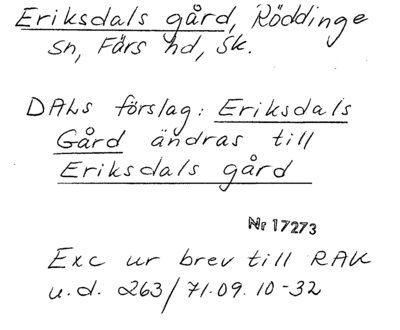 Eriksdals gård, Röddinge
sn, Färs hd, Sk.
DALs förslag: Eriksdals
Gård ändras till
Eriksdals gård
Nr 17273
Exc ur brev till RAK
u.d. 263/71.09.10-32